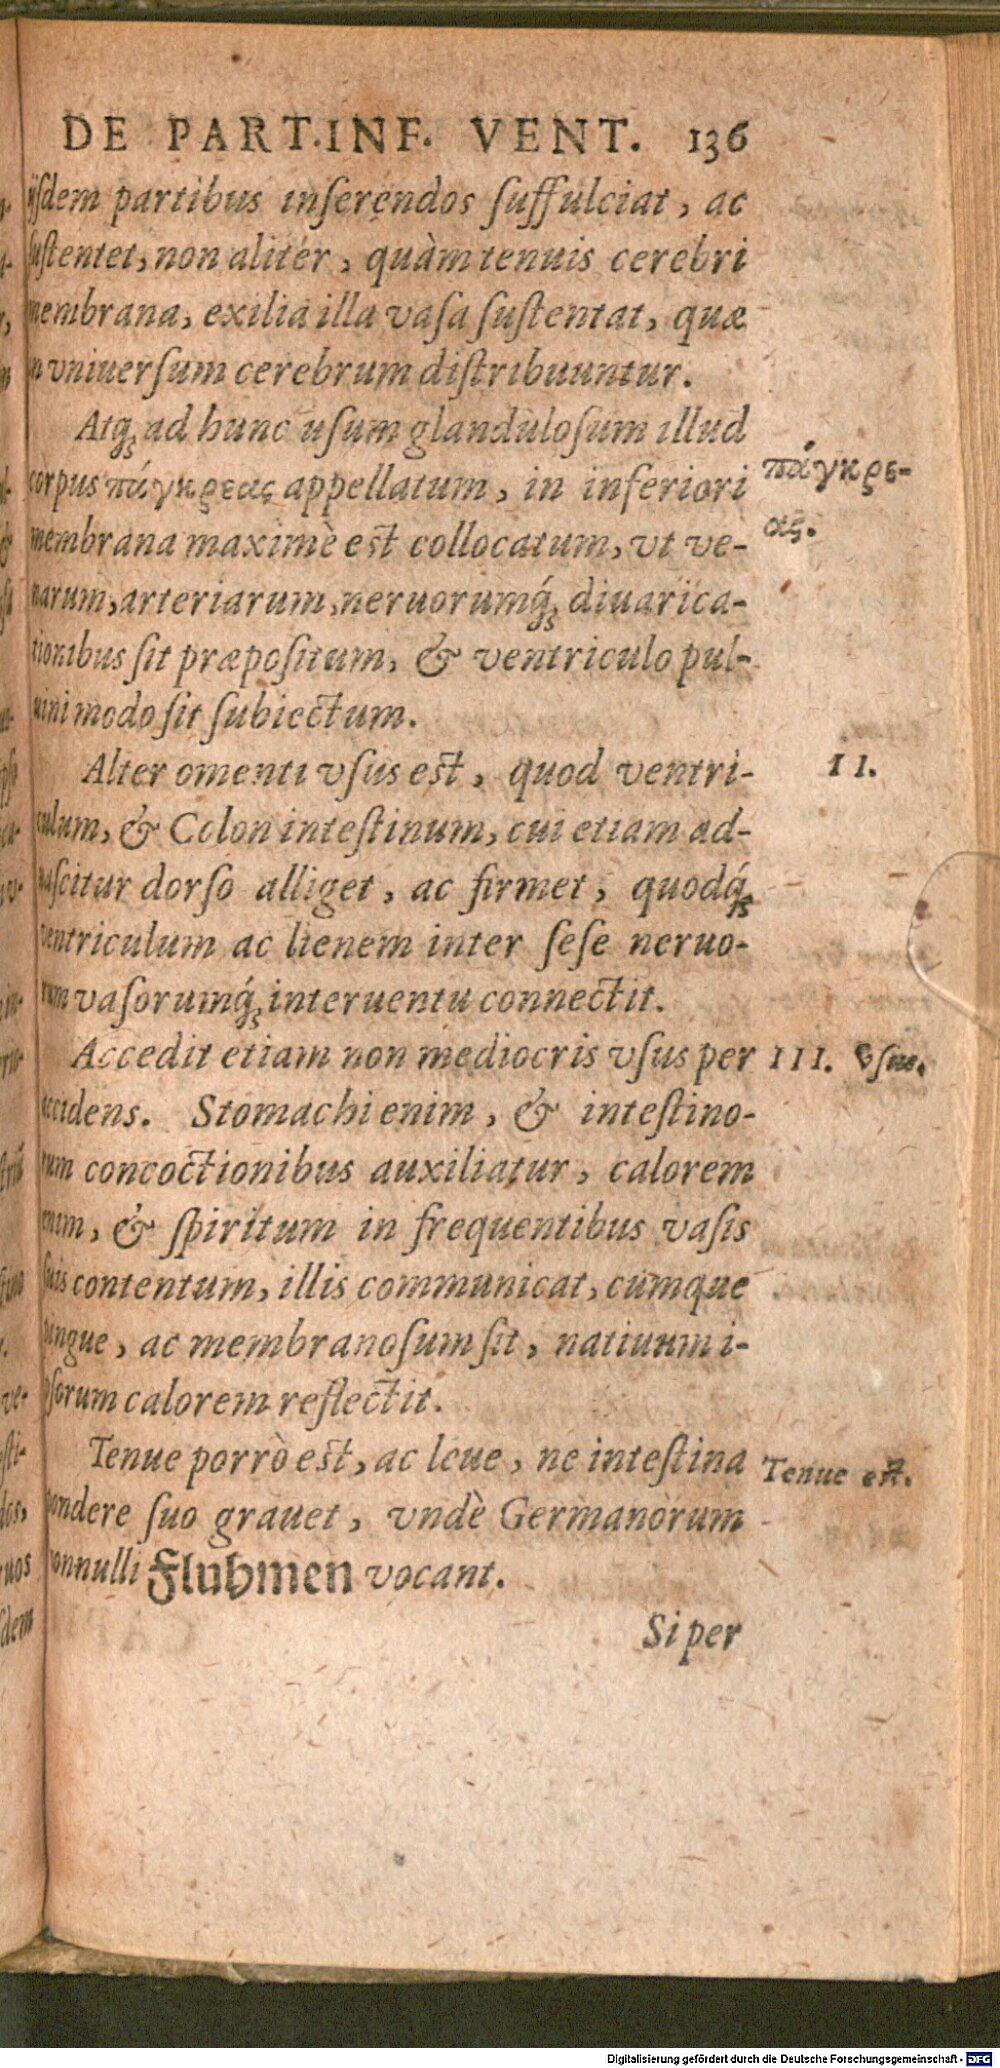 DE PART. INF. VENT. 136
ijſdem partibus inſerendos ſuffulciat, ac
ſuſtentet, non alitèr, quàm tenuis cerebri
membrana, exilia illa vaſa ſuſtentat, quæ
in vniuerſum cerebrum diſtribuuntur.
Atq́; ad hunc uſum glanduloſum illud
corpus πάγκρεας appellatum, in inferiori
πάγκρε-
ας.
membrana maximè eſt collocatum, vt ve-
narum, arteriarum, neruorumq́; diuarica-
tionibus ſit præpoſitum, & ventriculo pul-
uini modo ſit ſubiectum.
Alter omenti vſus eſt, quod ventri-
II.
culum, & Colon inteſtinum, cui etiam ad-
naſcitur dorſo alliget, ac firmet, quodq́;
ventriculum ac lienem inter ſeſe neruo-
rum vaſorumq́; interuentu connectit.
Accedit etiam non mediocris vſus per
III. vſus.
accidens. Stomachi enim, & inteſtino-
rum concoctionibus auxiliatur, calorem
enim, & ſpiritum in frequentibus vaſis
ſuis contentum, illis communicat, cumque
pingue, ac membranoſum ſit, natiuum i-
pſorum calorem reflectit.
Tenue porrò eſt, ac leue, ne inteſtina
Tenue eſt.
pondere ſuo grauet, vndè Germanorum
nonnulli Fluhmen vocant.
Si per
Digitalisierung gefördert durch die Deutsche Forschungsgemeinschaft - DFG